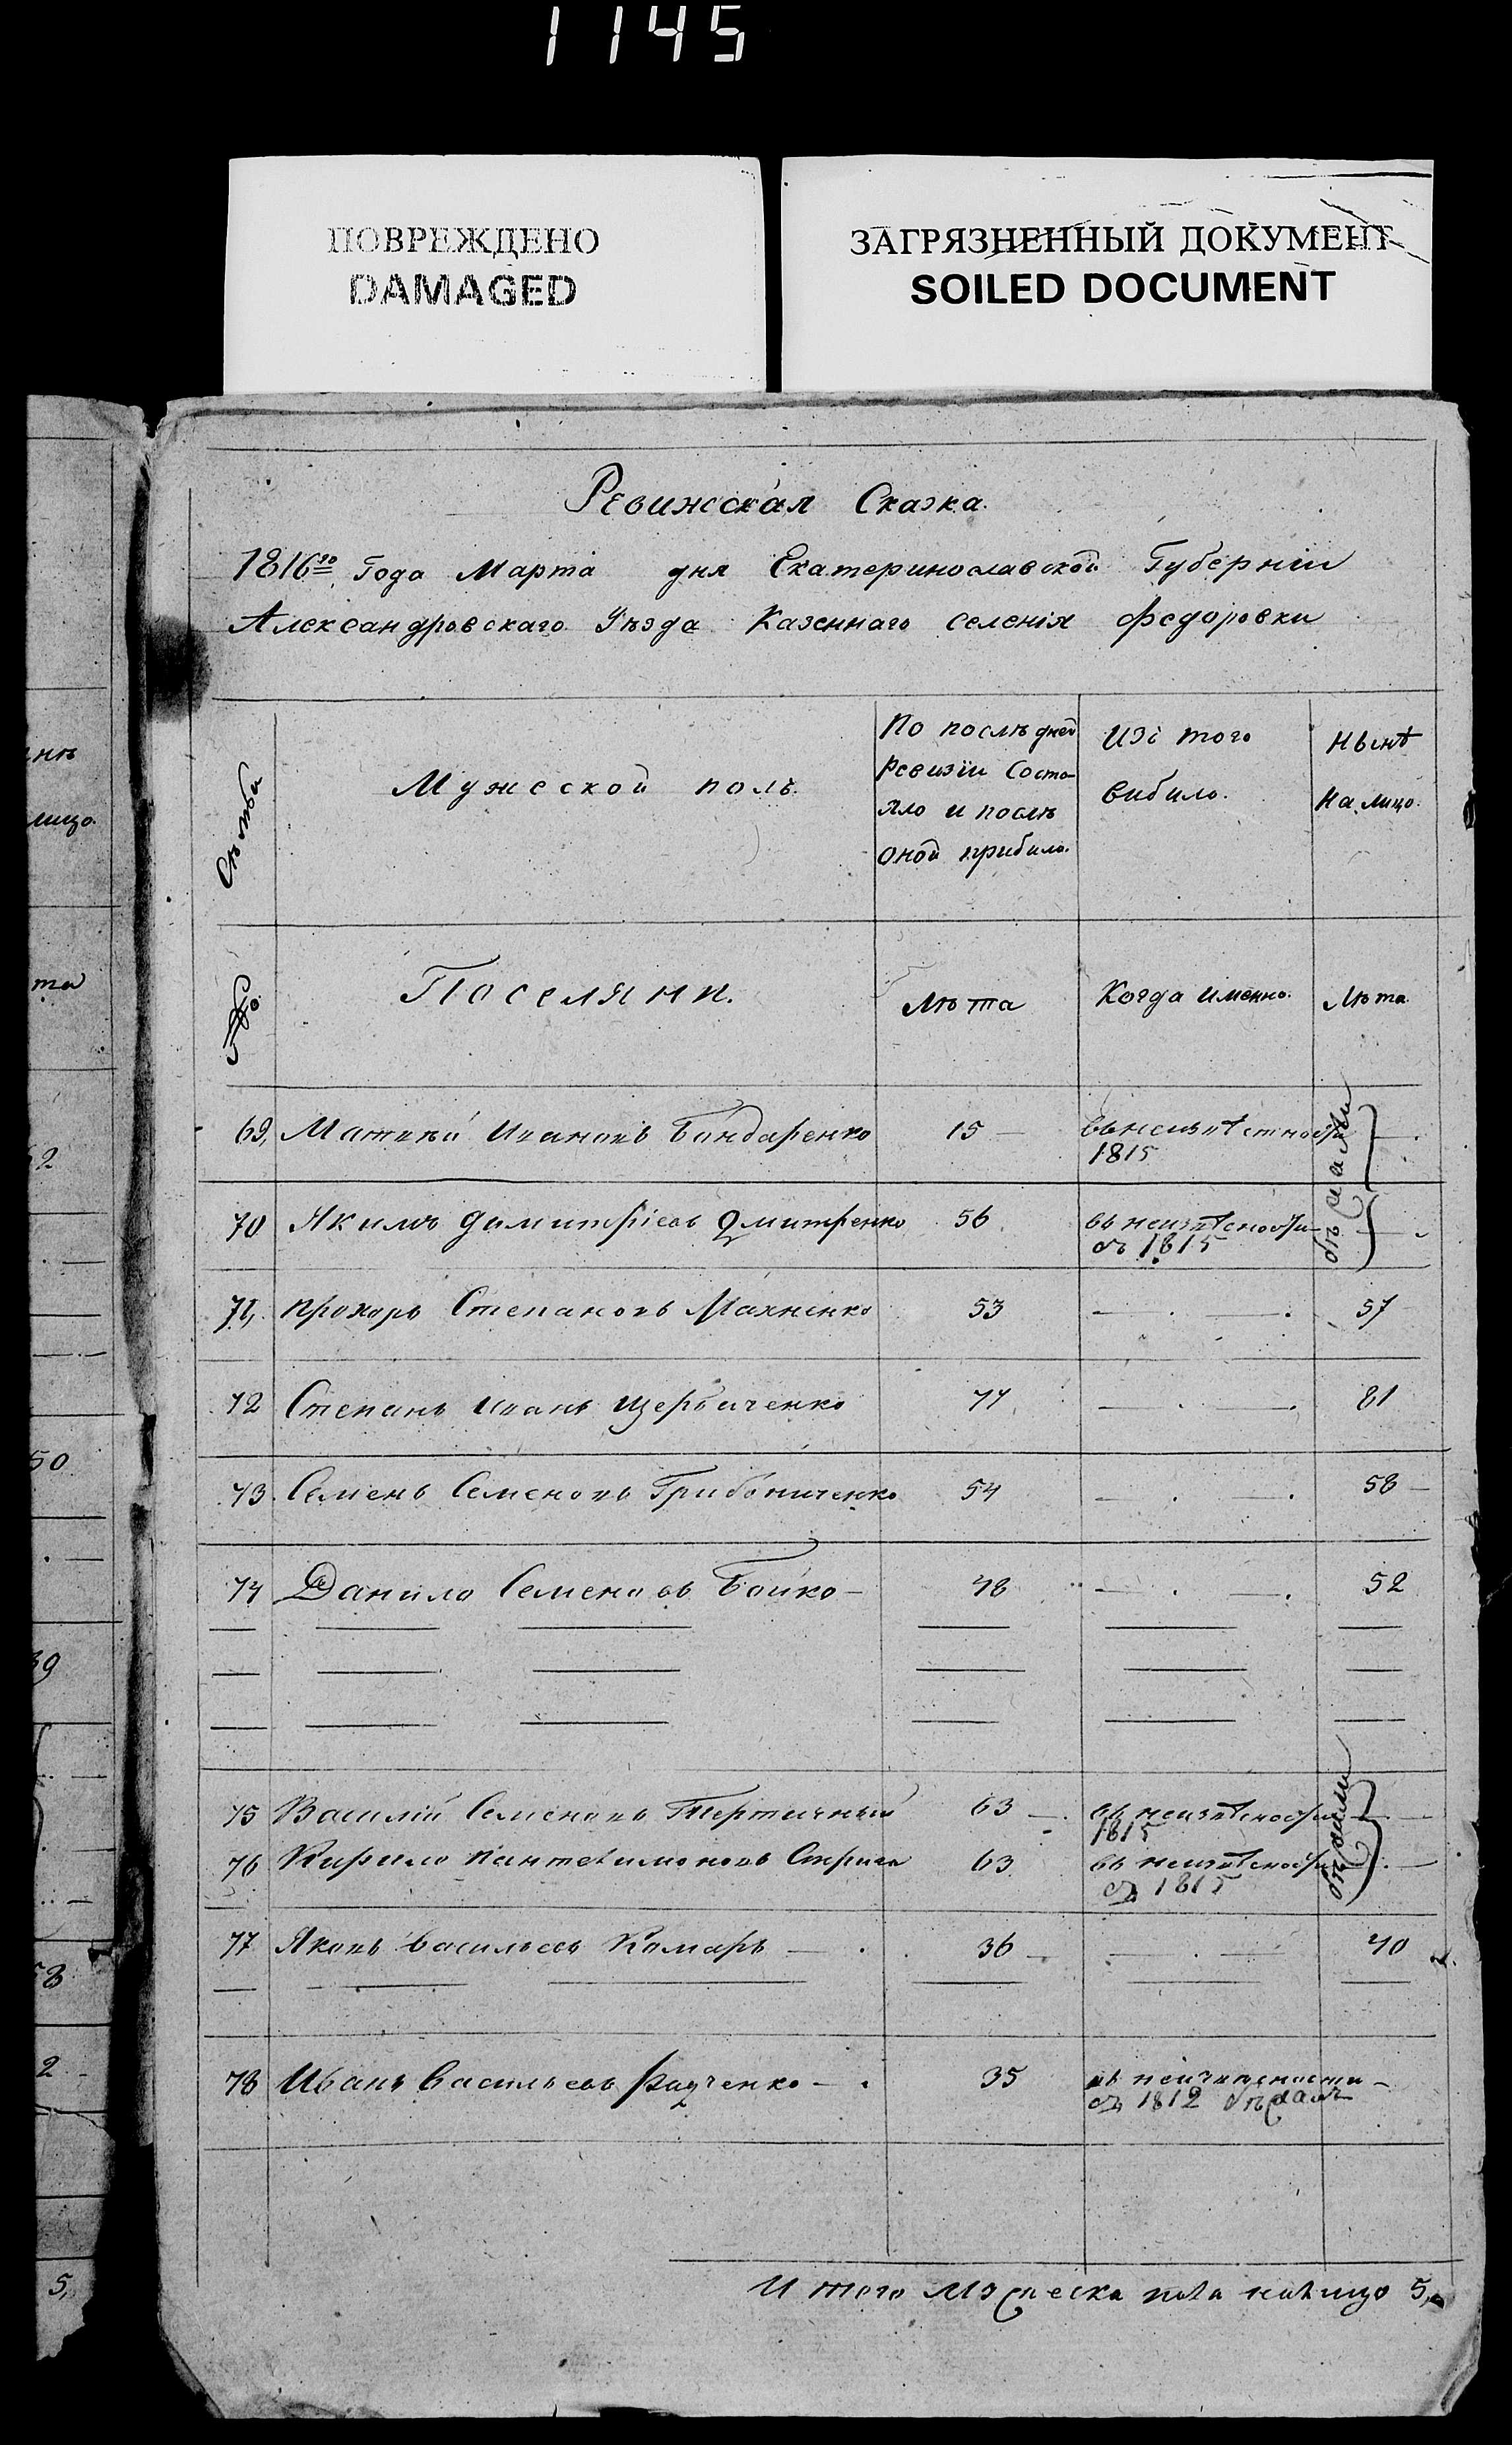 1145
ПОВРЕЖДЕНО
DAMAGED
ЗАГРЯЗНЕННЫЙ ДОКУМЕНТ
SOILED DOCUMENT
Ревижская Сказка.
1816го Года Марта дня Екатеринославской Губернiи
Александровскаго Уѣзда Казеннаго селенiя Федоровки
Мужеской полъ.
По послѣдней
Ревизiи Состо-
яло и послѣ
оной прибило.
Изъ того
вибило.
Нынѣ
на лицо.
Поселяни.
Лѣта
Когда именно.
Лѣта
69, Матвѣй Ивановъ Бондаренко 15 — въ неизвѣстности —
1815
70 Якимъ Димитрiевъ Дмитренко 56 въ неизвѣсности —
съ 1815
бѣжали
71, Прохоръ Степановъ Махненко 53 — . — . 57
72 Степанъ Иванъ Щербиченко 77 — . — . 81
73. Семенъ Семеновъ Грибониченко 54 — . — . 58 —
74 Данило Семеновъ Бойко — 48 — . — . 52
75 Василiй Семеновъ Тертичный 63 — въ неизвѣсности —
1815
76 Кирило Пантелимоновъ 63 въ неизвѣсности —
съ 1815
бѣжали
77 Яковъ Васильевъ Комаръ — . 36 — — . — 40
78 Иванъ Васильевъ Радченко — . 35 въ неизвѣсности —
съ 1812 бѣжалъ
Итого мужеска пола налицо 5,
нѣ
лицо.
та
2
50
39
58
2
5,